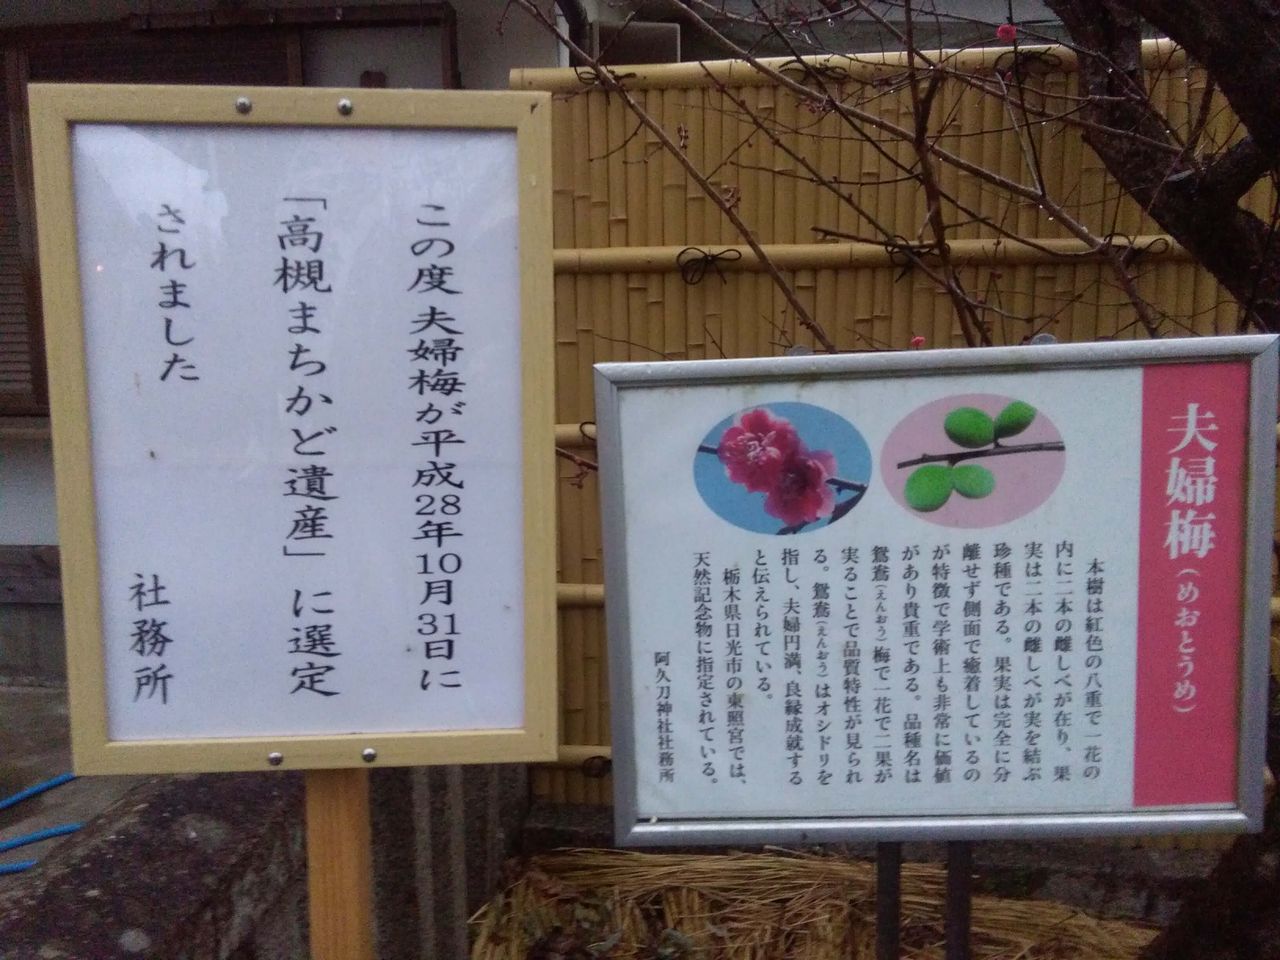 夫婦梅(めおとうめ)
本樹は紅色の八重で一花の
内に二本の雌しべが在り、果
実は二本の雌しべが実を結ぶ
珍種である。果実は完全に分
離せず側面で癒着しているの
が特徴で学術上も非常に価値
があり貴重である。品種名は
鴛鴦(えんおう)梅で一花で二果が
実ることで品質特性が見られ
る。鴛鴦(えんおう)はオシドリを
指し、夫婦円満、良縁成就する
と伝えられている。
栃木県日光市の東照宮では、
天然記念物に指定されている。
阿久刀神社社務所
この度夫婦梅が平成28年10月31日に
「高槻まちかど遺産」に選定
されました
社務所